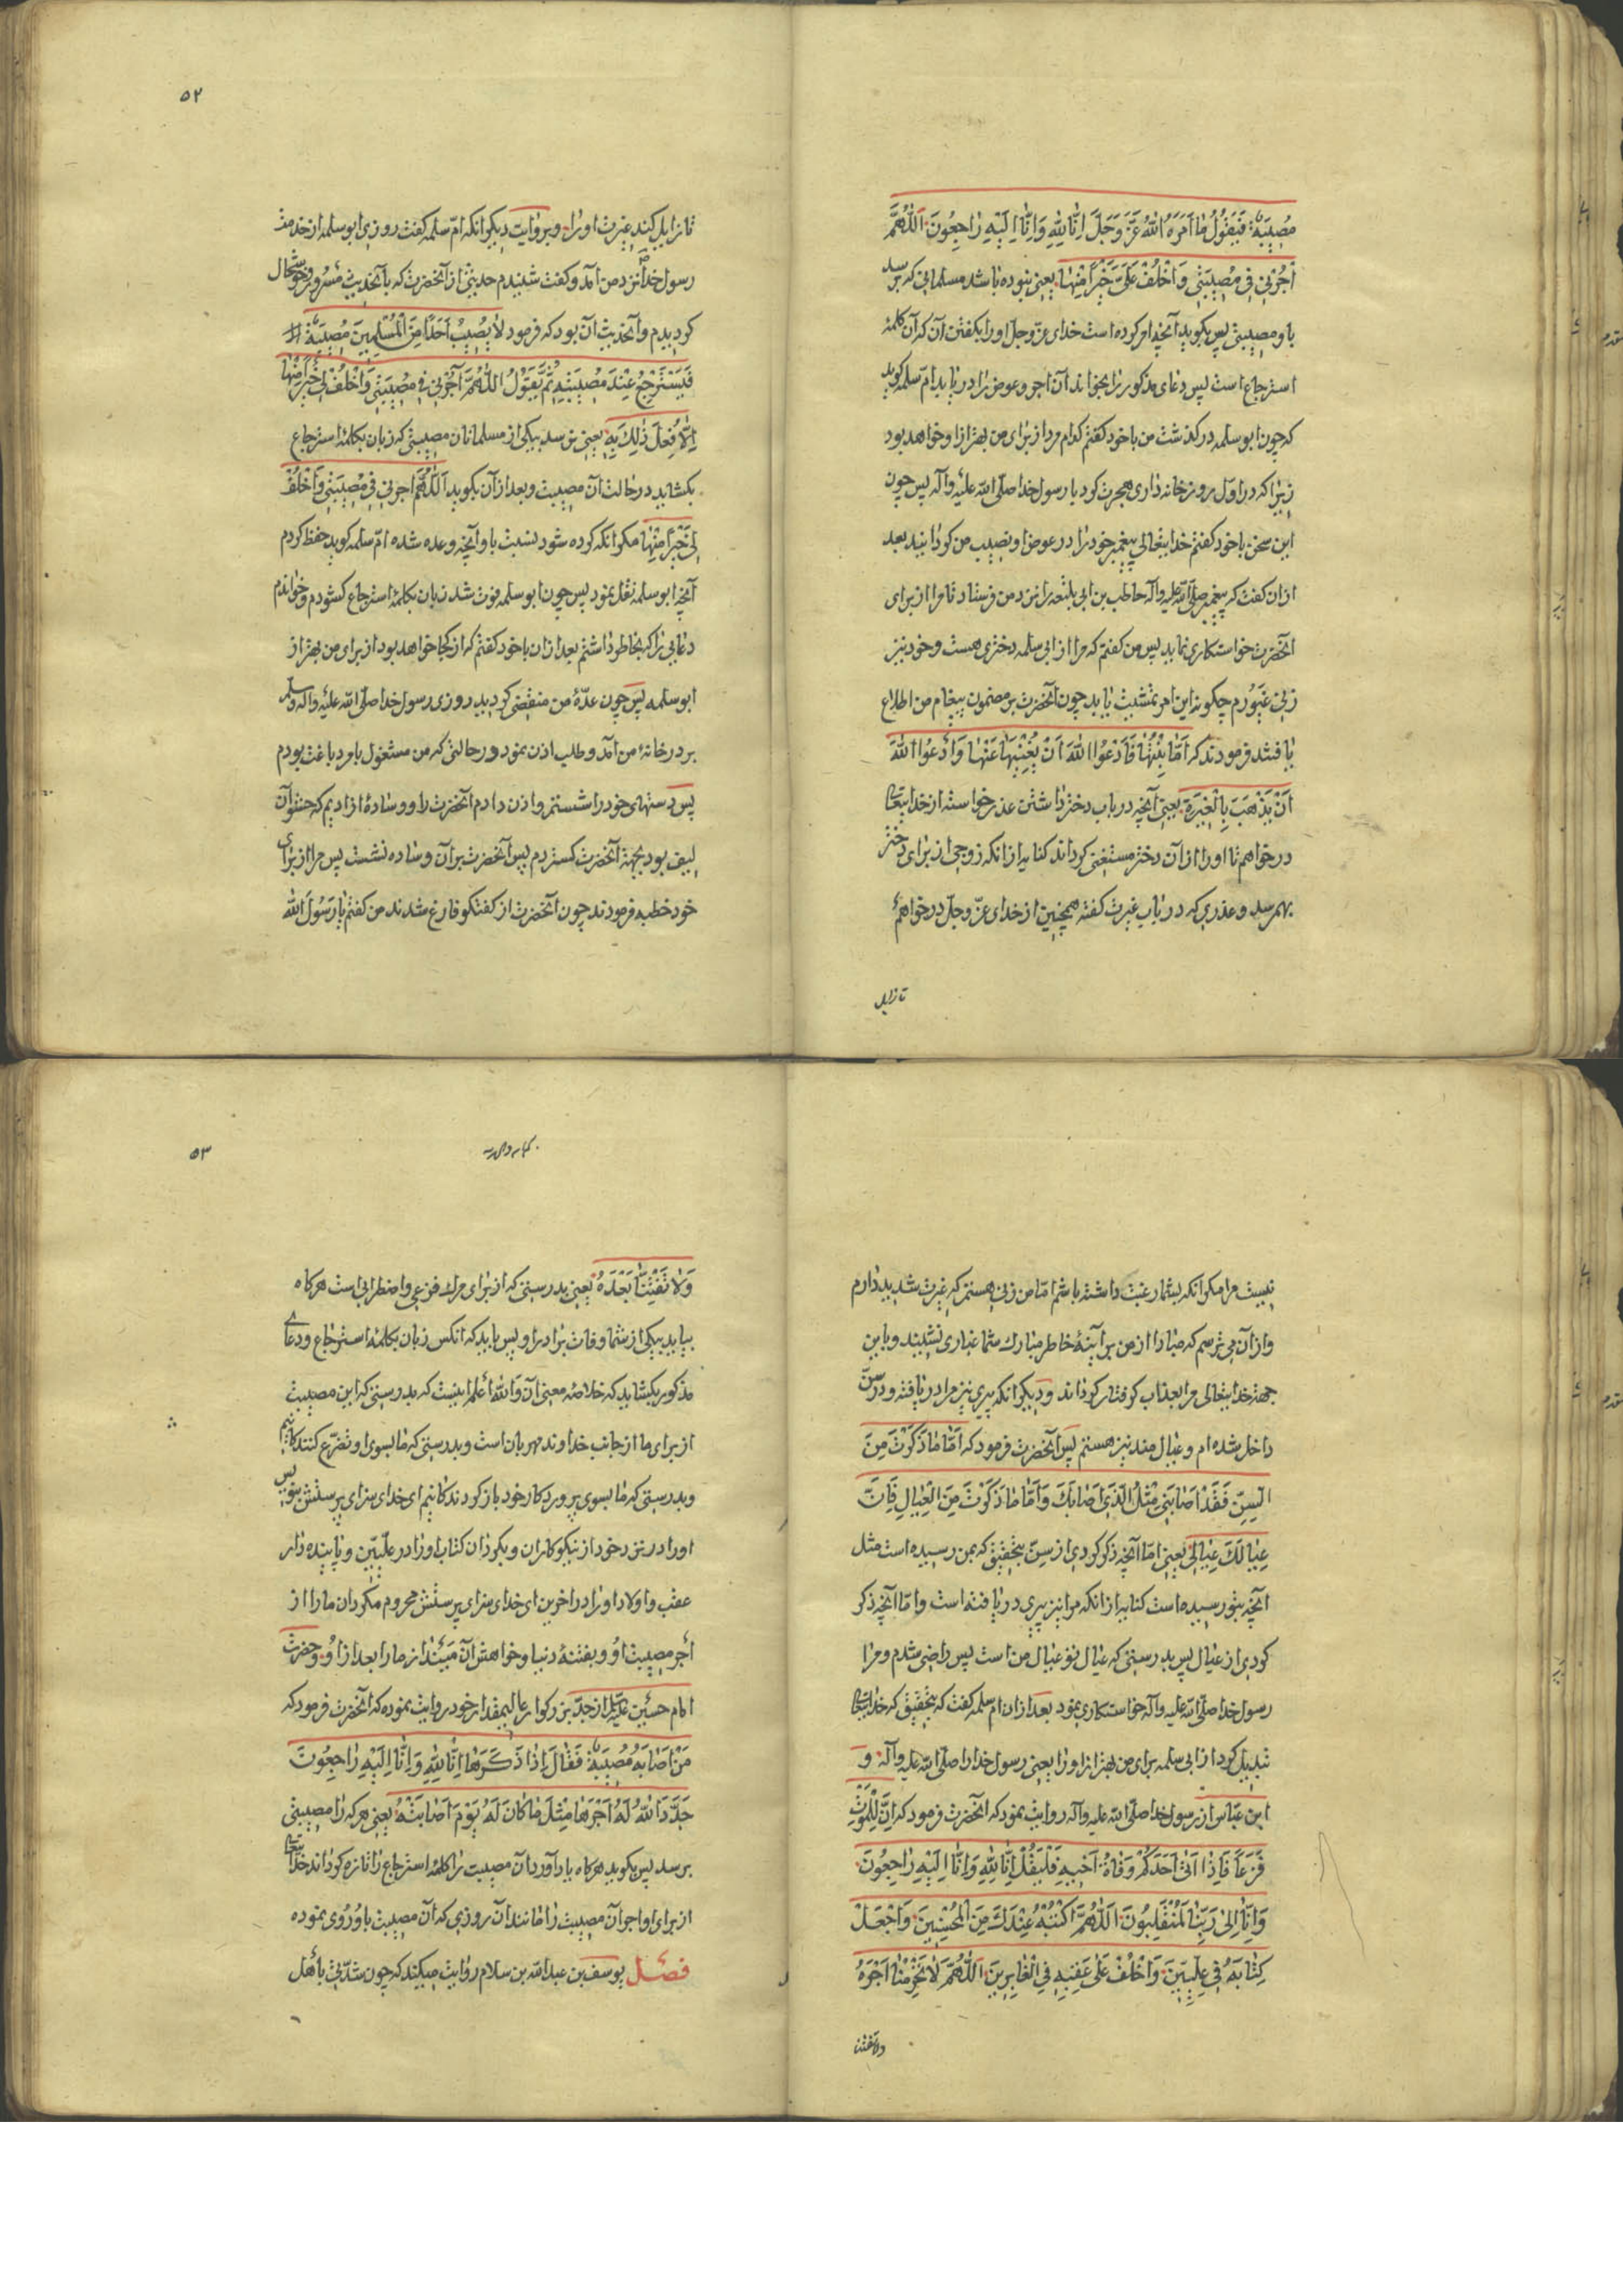 مُصِيبَةٌ فَيَقُولُ مَا اَمَرَهُ اللهُ عَزَّ وَجَلَّ اِنَّا لِلّٰهِ وَاِنَّا اِلَيْهِ رَاجِعُونَ اَللّٰهُمَّ
اَجُرْنِي فِي مُصِيبَتِي وَاخْلُفْ عَلَيَّ خَيْرًا مِنْهَا يعنى نبوده باشد مسلمانى كه برسد
باو مصيبتى پس بكويد آنچه امر كرده است خداى عزّ وجلّ او را بكفتن آن كه آن كلمهٔ
استرجاع است پس دعاى مذكور را بخواند آن اجر و عوض را دريابد امّ سلمه كويد
كه چون ابو سلمه دركذشت من با خود كفتم كدام مرد از براى من بهتر از او خواهد بود
زيرا كه در اوّل مرو زخانه دارى هجرت كرد با رسول خدا صلّى الله عليه وآله پس چون
اين سخن با خود كفتم خدايتعالى پيغمبر خود را در عوض او نصيب من كردانيد بعد
از ان كفت كه پيغمبر صلّى الله عليه وآله حاطب بن ابى بلتعه را نزد من فرستاد تا مرا از براى
آنحضرت خواستكارى نمايد پس من كفتم كه مرا از ابى سلمه دخترى هست و خود نيز
زنى غيورم چكونه اين امر تمشيت يابد چون آنحضرت بر مضمون پيغام من اطلاع
يافتند فرمودند كه اَمَّا بِنْتُهَا فَاَدْعُوا اللهَ اَنْ يُغْنِيَهَا عَنْهَا وَاَدْعُوا اللهَ
اَنْ يَذْهَبَ بِالْغَيْرَةِ يعنى آنچه در باب دختر داشتن عذر خواسته از خدايتعالى
درخواهم تا او را از آن دختر مستغنى كرداند كنايه از انكه زوجى از براى دختر
بهم رسد و عذرى كه در باب غيرت كفته همچنين از خداى عزّ وجلّ درخواهم
تا زايل
۵۲
تا زايل كند غيرت او را و بروايت ديكر انكه امّ سلمه كفت روزى ابو سلمه از خدمت
رسول خدا نزد من آمد و كفت شنيدم حديثى از آنحضرت كه بآنحديث مسرور و خوشحال
كرديدم و آنحديث آن بود كه فرمود لَا يُصِيبُ اَحَدًا مِنَ الْمُسْلِمِينَ مُصِيبَةٌ
فَيَسْتَرْجِعُ عِنْدَ مُصِيبَتِهِ ثُمَّ يَقُولُ اللّٰهُمَّ آجُرْنِي فِي مُصِيبَتِي وَاخْلُفْ لِي خَيْرًا مِنْهَا
اِلَّا فُعِلَ ذٰلِكَ بِهِ يعنى نرسد بيكى از مسلمانان مصيبتى كه زبان بكلمهٔ استرجاع
بكشايد در حالت آن مصيبت و بعد از آن بكويد اَللّٰهُمَّ اجرنى فِي مُصِيبَتِي وَاخْلُفْ
لِي خَيْرًا مِنْهَا مكر انكه كرده شود نسبت باو آنچه وعده شده امّ سلمه كويد حفظ كردم
آنچه ابو سلمه نقل نمود پس چون ابو سلمه فوت شد زبان بكلمهٔ استرجاع كشودم و خواندم
دعايى را كه بخاطر داشتم بعد از ان با خود كفتم كه از كجا خواهد بود از براى من بهتر از
ابو سلمه پس چون عدّهٔ من منقضى كرديد روزى رسول خدا صلّى الله عليه وآله وسلم
بر در خانهٔ من آمد و طلب اذن نمود در حالتى كه من مشغول بامر دباغت بودم
پس دستهاى خود را شستم و اذن دادم آنحضرت را و وسادهٔ از اديم كه حشو آن
ليف بود بجهة آنحضرت كستردم پس آنحضرت بر آن وساده نشست پس مرا از براى
خود خطبه فرمودند چون آنحضرت از كفتكو فارغ شدند من كفتم يا رَسُولَ اللهِ
نيست مرا مكر انكه بشما رغبت داشته باشم امّا من زنى هستم كه غيرت شديد دارم
و از آن مى ترسم كه مبادا از من بر آينهٔ خاطر مبارك شما غبارى نشيند و باين
جهة خدايتعالى مرا بعذاب كرفتار كرداند و ديكر انكه پيرى نيز مرا دريافته و در سن
داخل شده ام و عيال مند نيز هستم پس آنحضرت فرمود كه اَمَّا مَا ذَكَرْتَ مِنَ
السِنِّ فَقَدْ اَصَابَنِي مِثْلُ الَّذِي اَصَابَكَ وَاَمَّا مَا ذَكَرْتَ مِنَ الْعِيَالِ فَاِنَّ
عِيَالَكَ عِيَالِي يعنى امّا آنچه ذكر كردى از سنّ بتحقيق كه بمن رسيده است مثل
آنچه بتو رسيده است كنايه از انكه مرا نيز پيرى دريافته است و امّا آنچه ذكر
كردى از عيال پس بدرستى كه عيال تو عيال من است پس راضى شدم و مرا
رسول خدا صلّى الله عليه وآله خواستكارى نمود بعد از ان ام سلمه كفت كه بتحقيق كه خدايتعالى
تبديل كرد از ابى سلمه براى من بهتر از او را يعنى رسول خدا را صلّى الله عليه وآله و
ابن عبّاس از رسول خدا صلّى الله عليه وآله روايت نمود كه آنحضرت فرمود كه اِنَّ لِلْمَوْتِ
فَزَعًا فَاِذَا اَتَى اَحَدَكُمْ وَفَاةُ اَخِيهِ فَلْيَقُلْ اِنَّا لِلّٰهِ وَاِنَّا اِلَيْهِ رَاجِعُونَ
وَاِنَّا اِلَىٰ رَبِّنَا لَمُنْقَلِبُونَ اَللّٰهُمَّ اكْتُبْهُ عِنْدَكَ مِنَ الْمُحْسِنِينَ وَاجْعَلْ
كِتَابَهُ فِي عِلِّيِّينَ وَاخْلُفْ عَلَى عَقِبِهِ فِي الْغَابِرِينَ اَللّٰهُمَّ لَا تَحْرِمْنَا اَجْرَهُ
ولا تفتنا
۵۳
وَلَا تَفْتِنَّا بَعْدَهُ يعنى بدرستى كه از براى مرك فزعى و اضطرابى است هركاه
بيايد بيكى از شما وفات برادر او پس بايد كه انكس زبان بكلمهٔ استرجاع و دعاى
مذكور بكشايد كه خلاصهٔ معنى آن وَاللهُ اَعْلَم اينست كه بدرستى كه اين مصيبت
از براى ما از جانب خداوند مهربان است و بدرستى كه ما بسوى او تضرّع كنندكانيم
و بدرستى كه ما بسوى پروردكار خود بازكردندكانيم اى خداى سزاى پرستش بنويس
او را در نزد خود از نيكوكاران و بكردان كتاب او را در علّيّين و پاينده دار
عقب و اولاد او را در آخرين اى خداى سزاى پرستش محروم مكردان ما را از
اجر مصيبت او و بفتنهٔ دنيا و خواهش آن مينداز ما را بعد از او و حضرت
امام حسين عليه السلام از جدّ بزركوار عاليمقدار خود روايت نموده كه آنحضرت فرمود كه
مَنْ اَصَابَهُ مُصِيبَةٌ فَقَالَ اِذَا ذَكَرَهَا اِنَّا لِلّٰهِ وَاِنَّا اِلَيْهِ رَاجِعُونَ
جَدَّدَ اللهُ لَهُ اَجْرَهَا مِثْلَ مَا كَانَ لَهُ يَوْمَ اَصَابَتْهُ يعنى هر كه را مصيبتى
برسد پس بكويد هركاه ياد آورد آن مصيبت را كلمهٔ استرجاع را تازه كرداند خدايتعالى
از براى او اجر آن مصيبت را مانند آن روزى كه آن مصيبت باو رُوى نموده
فصل يوسف بن عبدالله بن سلام روايت ميكند كه چون شدّتى باهل